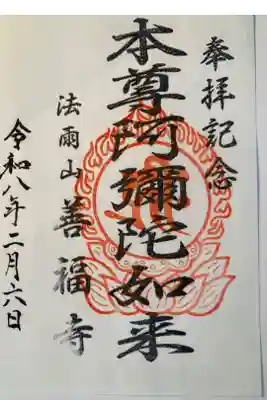 奉拝記念
本尊阿彌陀如来
法爾山善福寺
令和八年二月六日